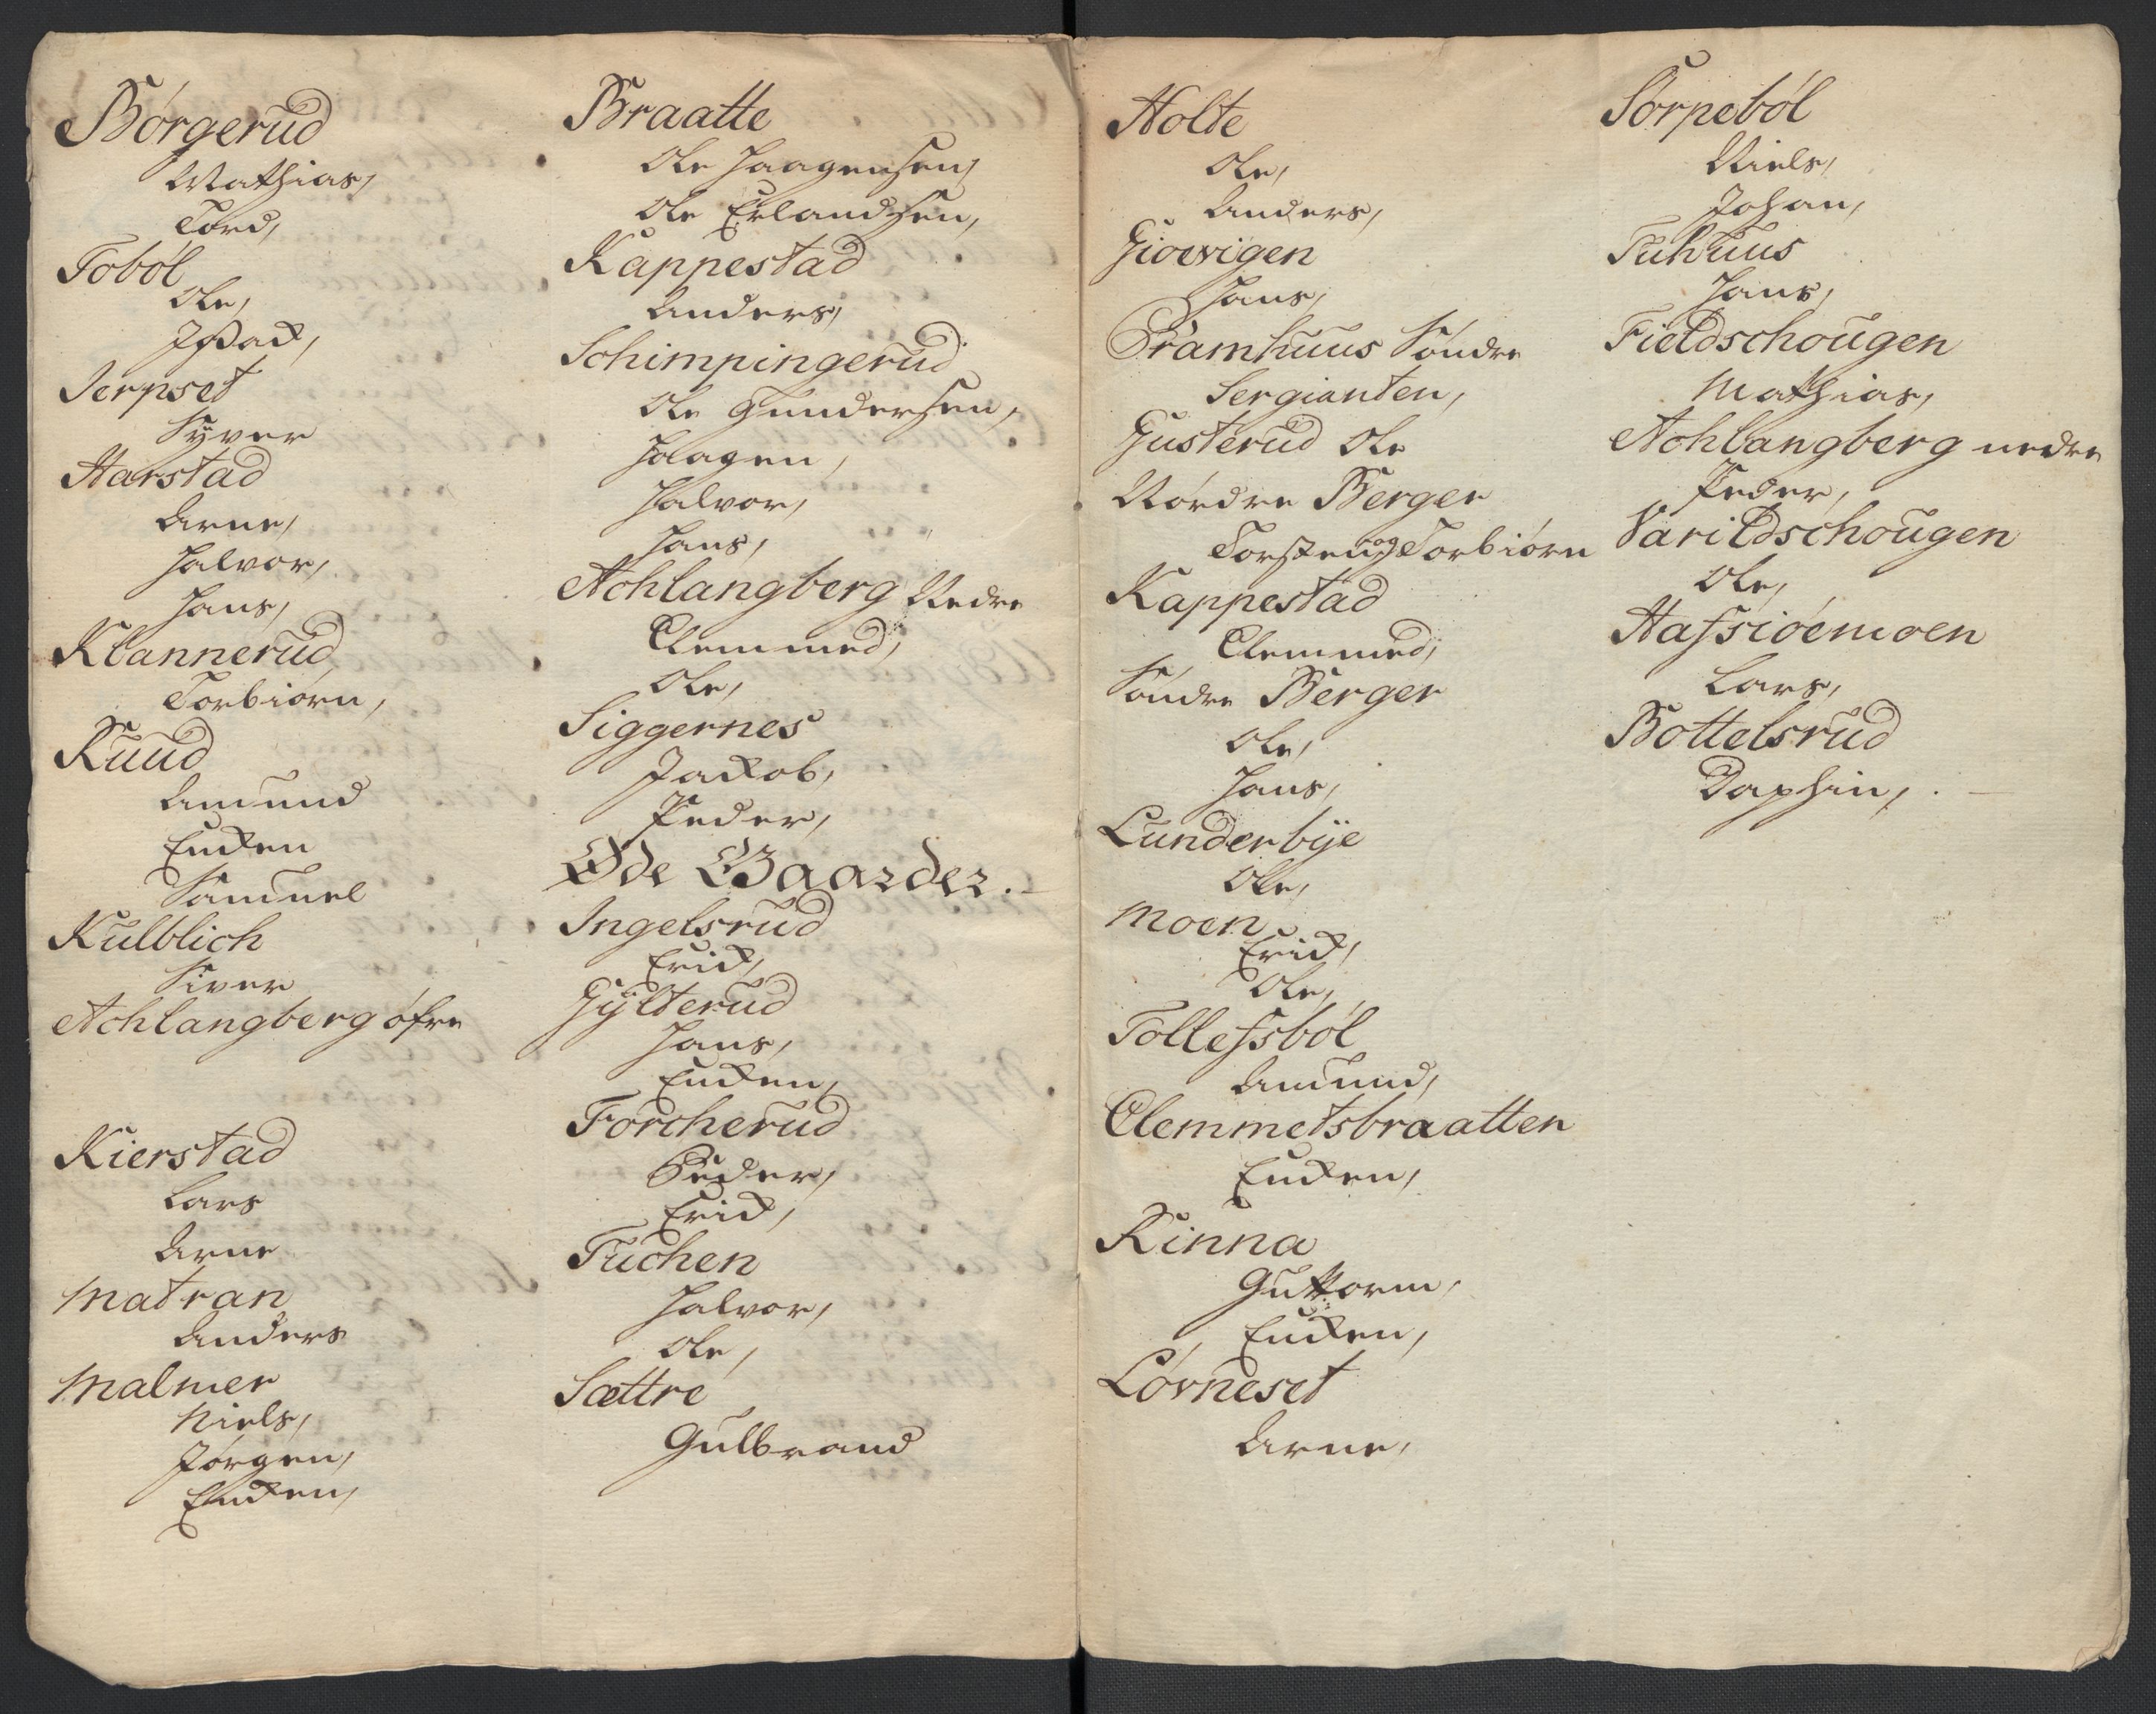 Børgerud
Mathias,
Tord,
Tobøl
Ole,
Isack,
Jerpset
Syver
Harstad
Arne,
Halvor,
Hans,
Klannerud
Torbiørn,
Kuud
Amund
Encken
Samuel
Kulblich
Siver
Achlangberg øfre
Kierstad
Lars
Arne
Matran
Anders
Malmer
Niels,
Jørgen,
Encken,
Braatte
Ole Haagensen,
Ole Erlandsen,
Kappestad
Anders,
Schimpingerud
Ole Gundersen,
Haagen,
Halvor,
Hans,
Achlangberg Nedre
Clemmed,
Ole,
Siggernes
Jackob,
Peder,
Øde Gaarder.
Ingelsrud
Erick,
Gylterud
Hans,
Encken,
Forcherud
Peder,
Erick,
Tuchen
Halvor,
Ole,
Sættre
Gulbrand
Holte
Ole,
Anders,
Giøevigen
Hans,
Framhuus Søndre
Sergianten,
Gusterud Ole
Nordre Berger
Torsten og Torbiørn
Kappestad
Clemmed,
Søndre Berger
Ole,
Hans,
Lunderbÿe
Ole,
Moen
Erick,
Ole,
Tollefsbøl
Amund,
Clemmetsbraatten
Encken,
Rinna
Guttorm,
Encken,
Løvneset
Arne,
Torpebøl
Niels,
Johan,
Tuhuus
Hans,
Fieldschougen
Mathias,
Achlangberg nedre
Peder,
Varildschougen
Ole,
Hafsiøemoen
Lars,
Bottelsrud
Daphin,